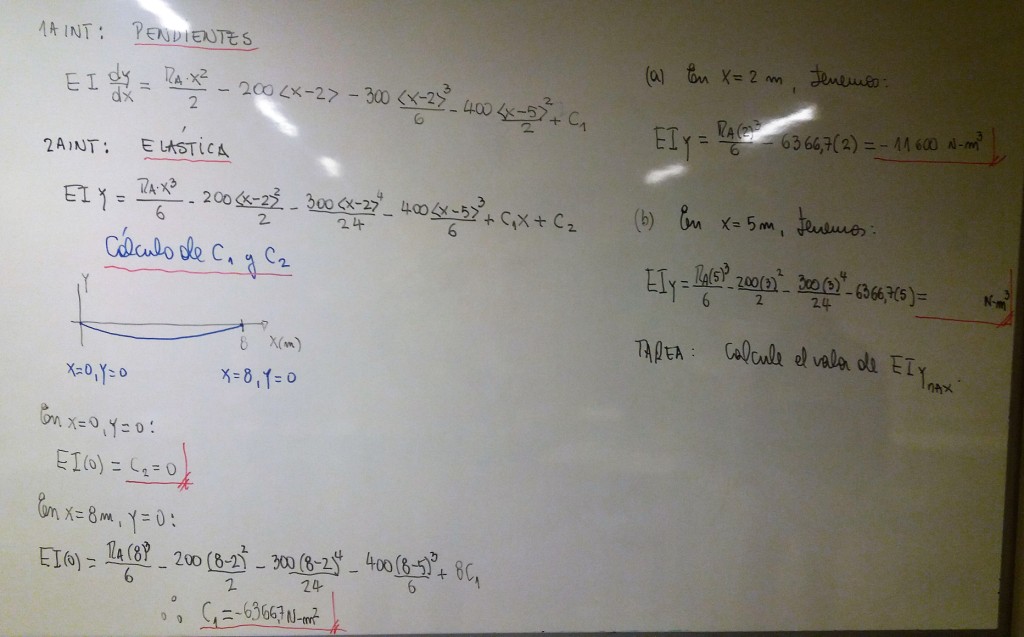 1A INT: PENDIENTES
EI dy/dx = R_A·x²/2 - 200<x-2> - 300<x-2>³/6 - 400<x-5>²/2 + C₁
2A INT: ELÁSTICA
EIY = R_A·x³/6 - 200<x-2>²/2 - 300<x-2>⁴/24 - 400<x-5>³/6 + C₁x + C₂
Cálculo de C₁ y C₂
Y
8 X(m)
X=0, Y=0 X=8, Y=0
En x=0, y=0:
EI(0) = C₂=0
En x=8m, y=0:
EI(0) = R_A(8)³/6 - 200(8-2)²/2 - 300(8-2)⁴/24 - 400(8-5)³/6 + 8C₁
∴ C₁=-6366,7 N-m²
(a) En x=2 m, tenemos:
EIy = R_A(2)³/6 - 6366,7(2) = -11 600 N-m³
(b) En x=5m, tenemos:
EIy = R_A(5)³/6 - 200(3)²/2 - 300(3)⁴/24 - 6366,7(5) = N-m³
TAREA: Calcule el valor de EIy_MAX.